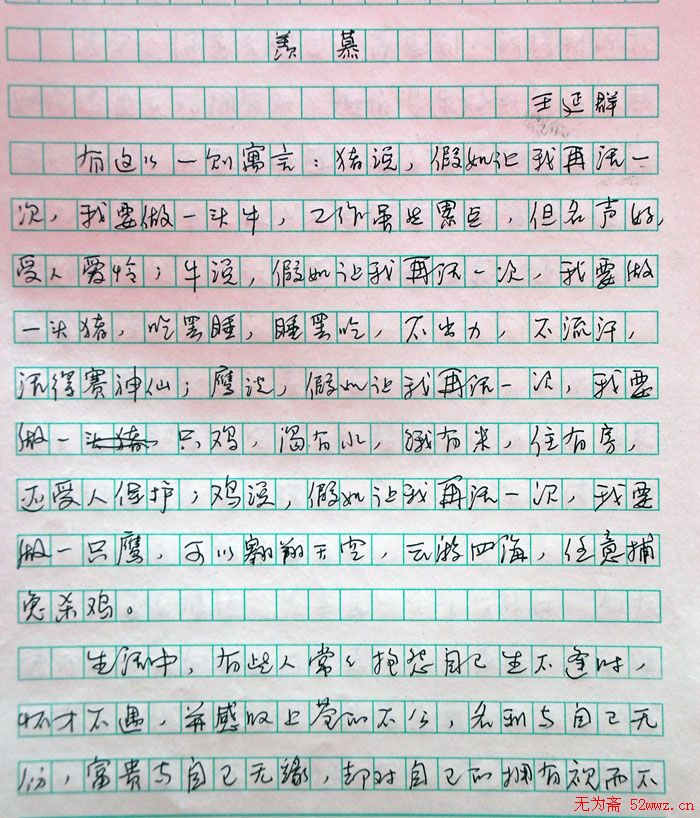 羡慕
王延群
有这么一则寓言：猪说，假如让我再活一
次，我要做一头牛，工作虽然累点，但名声好，
受人爱怜；牛说，假如让我再活一次，我要做
一头猪，吃罢睡，睡罢吃，不出力，不流汗，
活得赛神仙；鹰说，假如让我再活一次，我要
做一头猪只鸡，渴有水，饿有米，住有房，
还受人保护；鸡说，假如让我再活一次，我要
做一只鹰，可以翱翔天空，云游四海，任意捕
兔杀鸡。
生活中，有些人常々抱怨自己生不逢时，
怀才不遇，并感叹上苍的不公，名利与自己无
份，富贵与自己无缘，却对自己的拥有视而不
无为斋 52wwz.cn